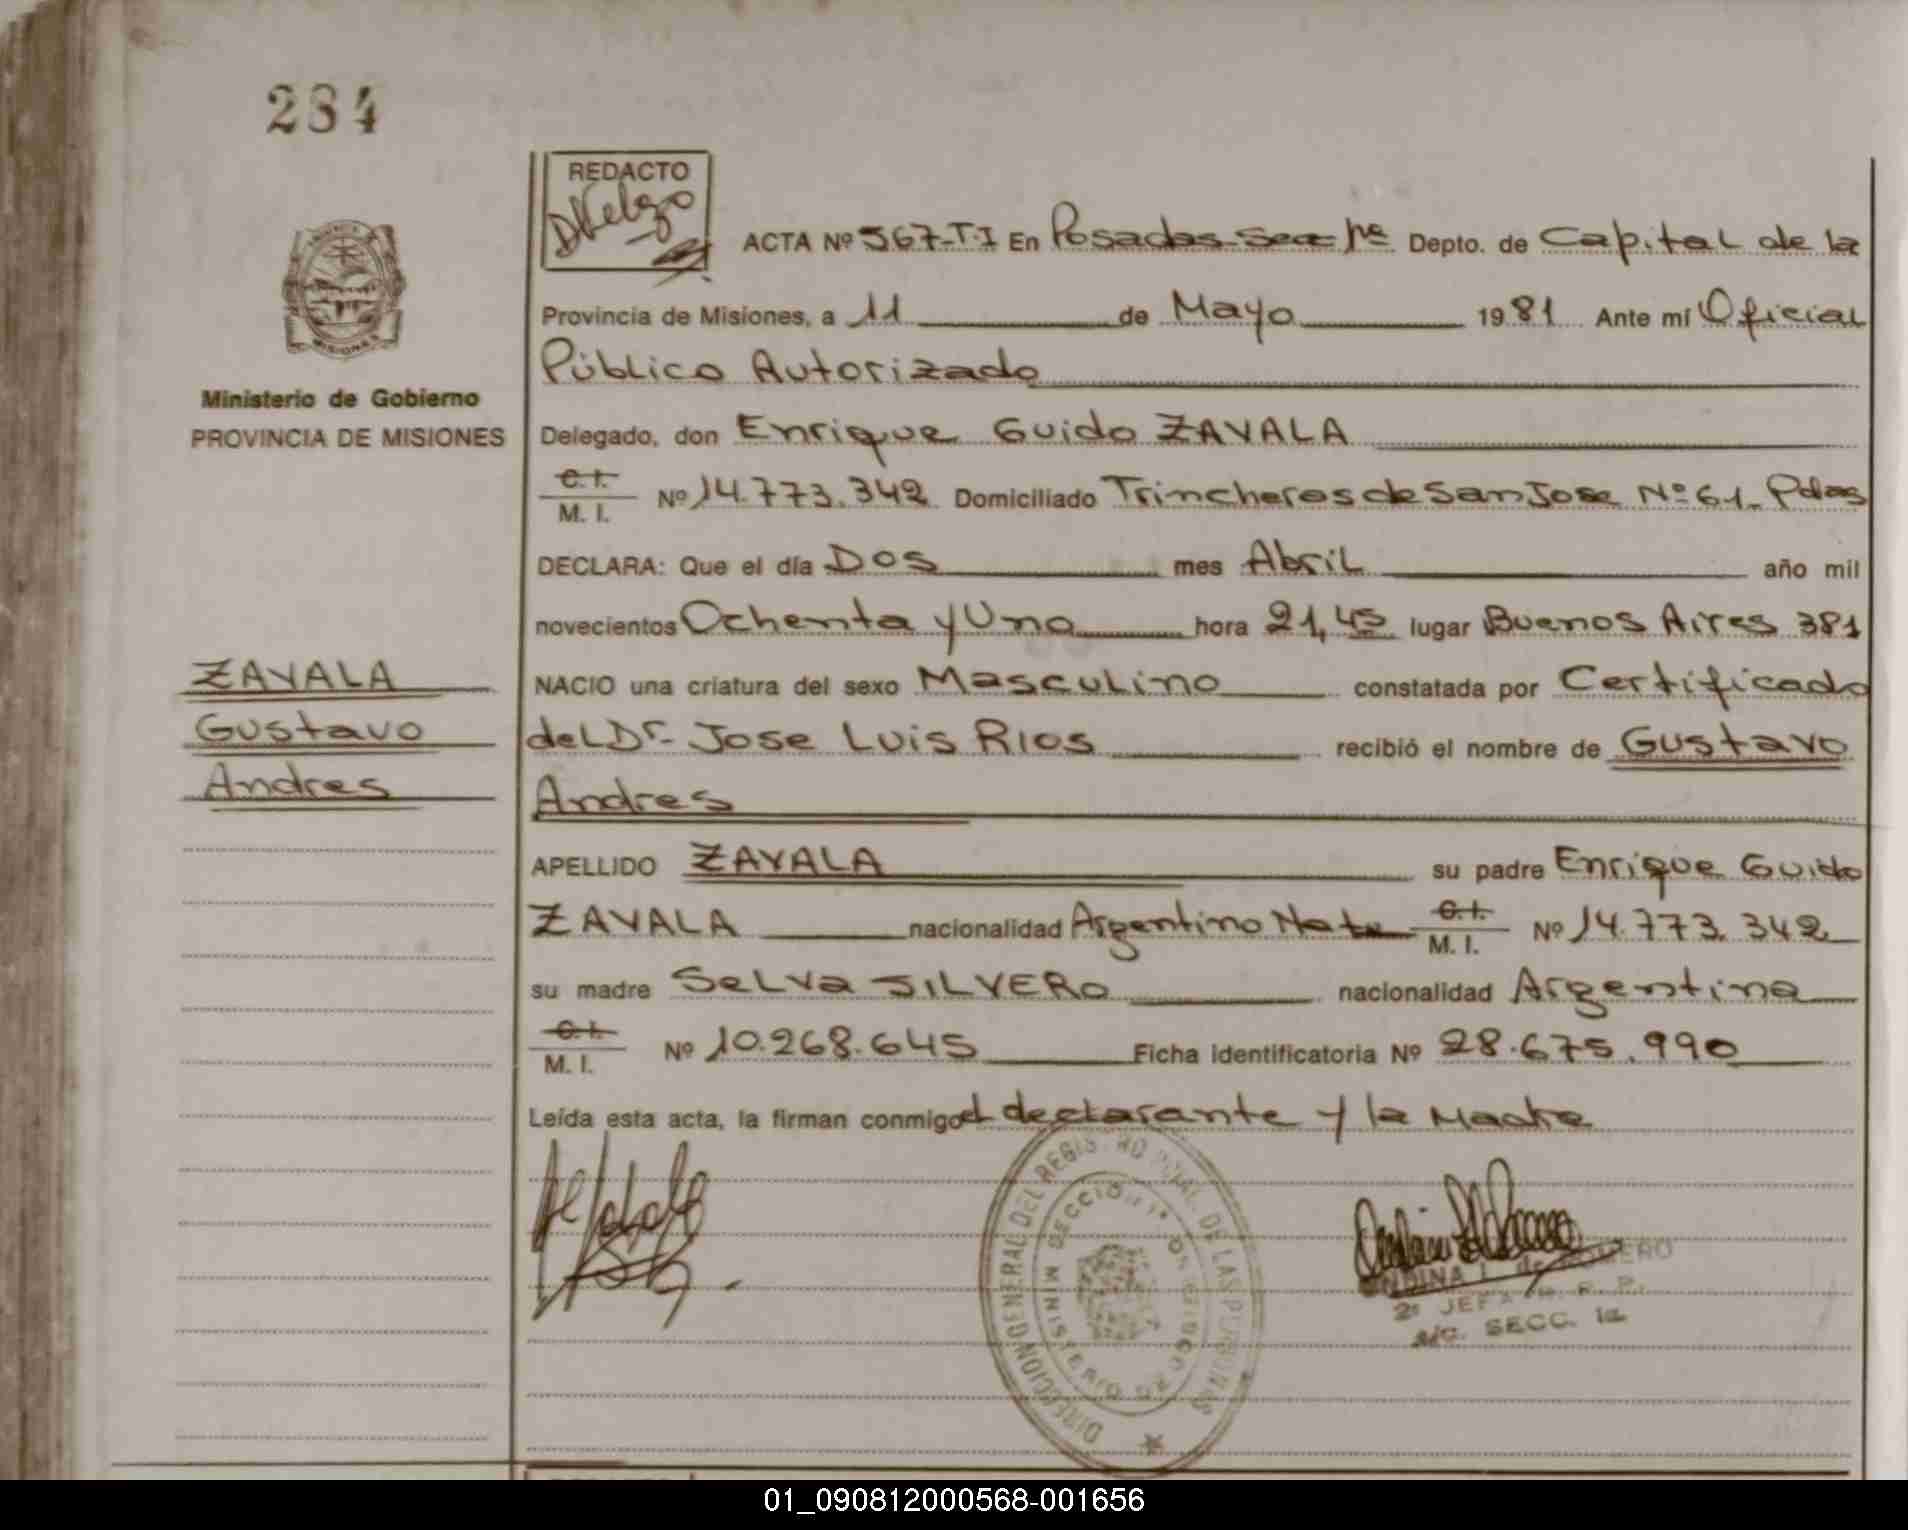 284
REDACTO
ACTA Nº 567-T·I En Posadas Secc 1ra Depto. de Capital de la
MISIONES
Provincia de Misiones, a 11 de Mayo 1981 Ante mí Oficial
Público Autorizado
Ministerio de Gobierno
PROVINCIA DE MISIONES
Delegado, don Enrique Guido ZAVALA
C. I.
M. I. Nº 14.773.342 Domiciliado Trincheras de San Jose Nº 61_ Pdas
DECLARA: Que el día Dos mes Abril año mil
novecientos Ochenta y Uno hora 21,45 lugar Buenos Aires 381
ZAVALA
NACIO una criatura del sexo Masculino constatada por Certificado
Gustavo
del Dr. Jose Luis Rios recibió el nombre de Gustavo
Andres
Andres
APELLIDO ZAVALA su padre Enrique Guido
ZAVALA nacionalidad Argentino Nato C. I.
M. I. Nº 14.773.342
su madre Selva SILVERO nacionalidad Argentina
C. I.
M. I. Nº 10.268.645 Ficha identificatoria Nº 28.675.990
Leída esta acta, la firman conmigo el declarante y la Madre
DIRECCION GENERAL DEL REGISTRO DE LAS PERSONAS
SECCION 1ª
MINISTERIO DE GOBIERNO
de ROMERO
2ª JEFA
a/c. SECC. 1a
01_090812000568-001656